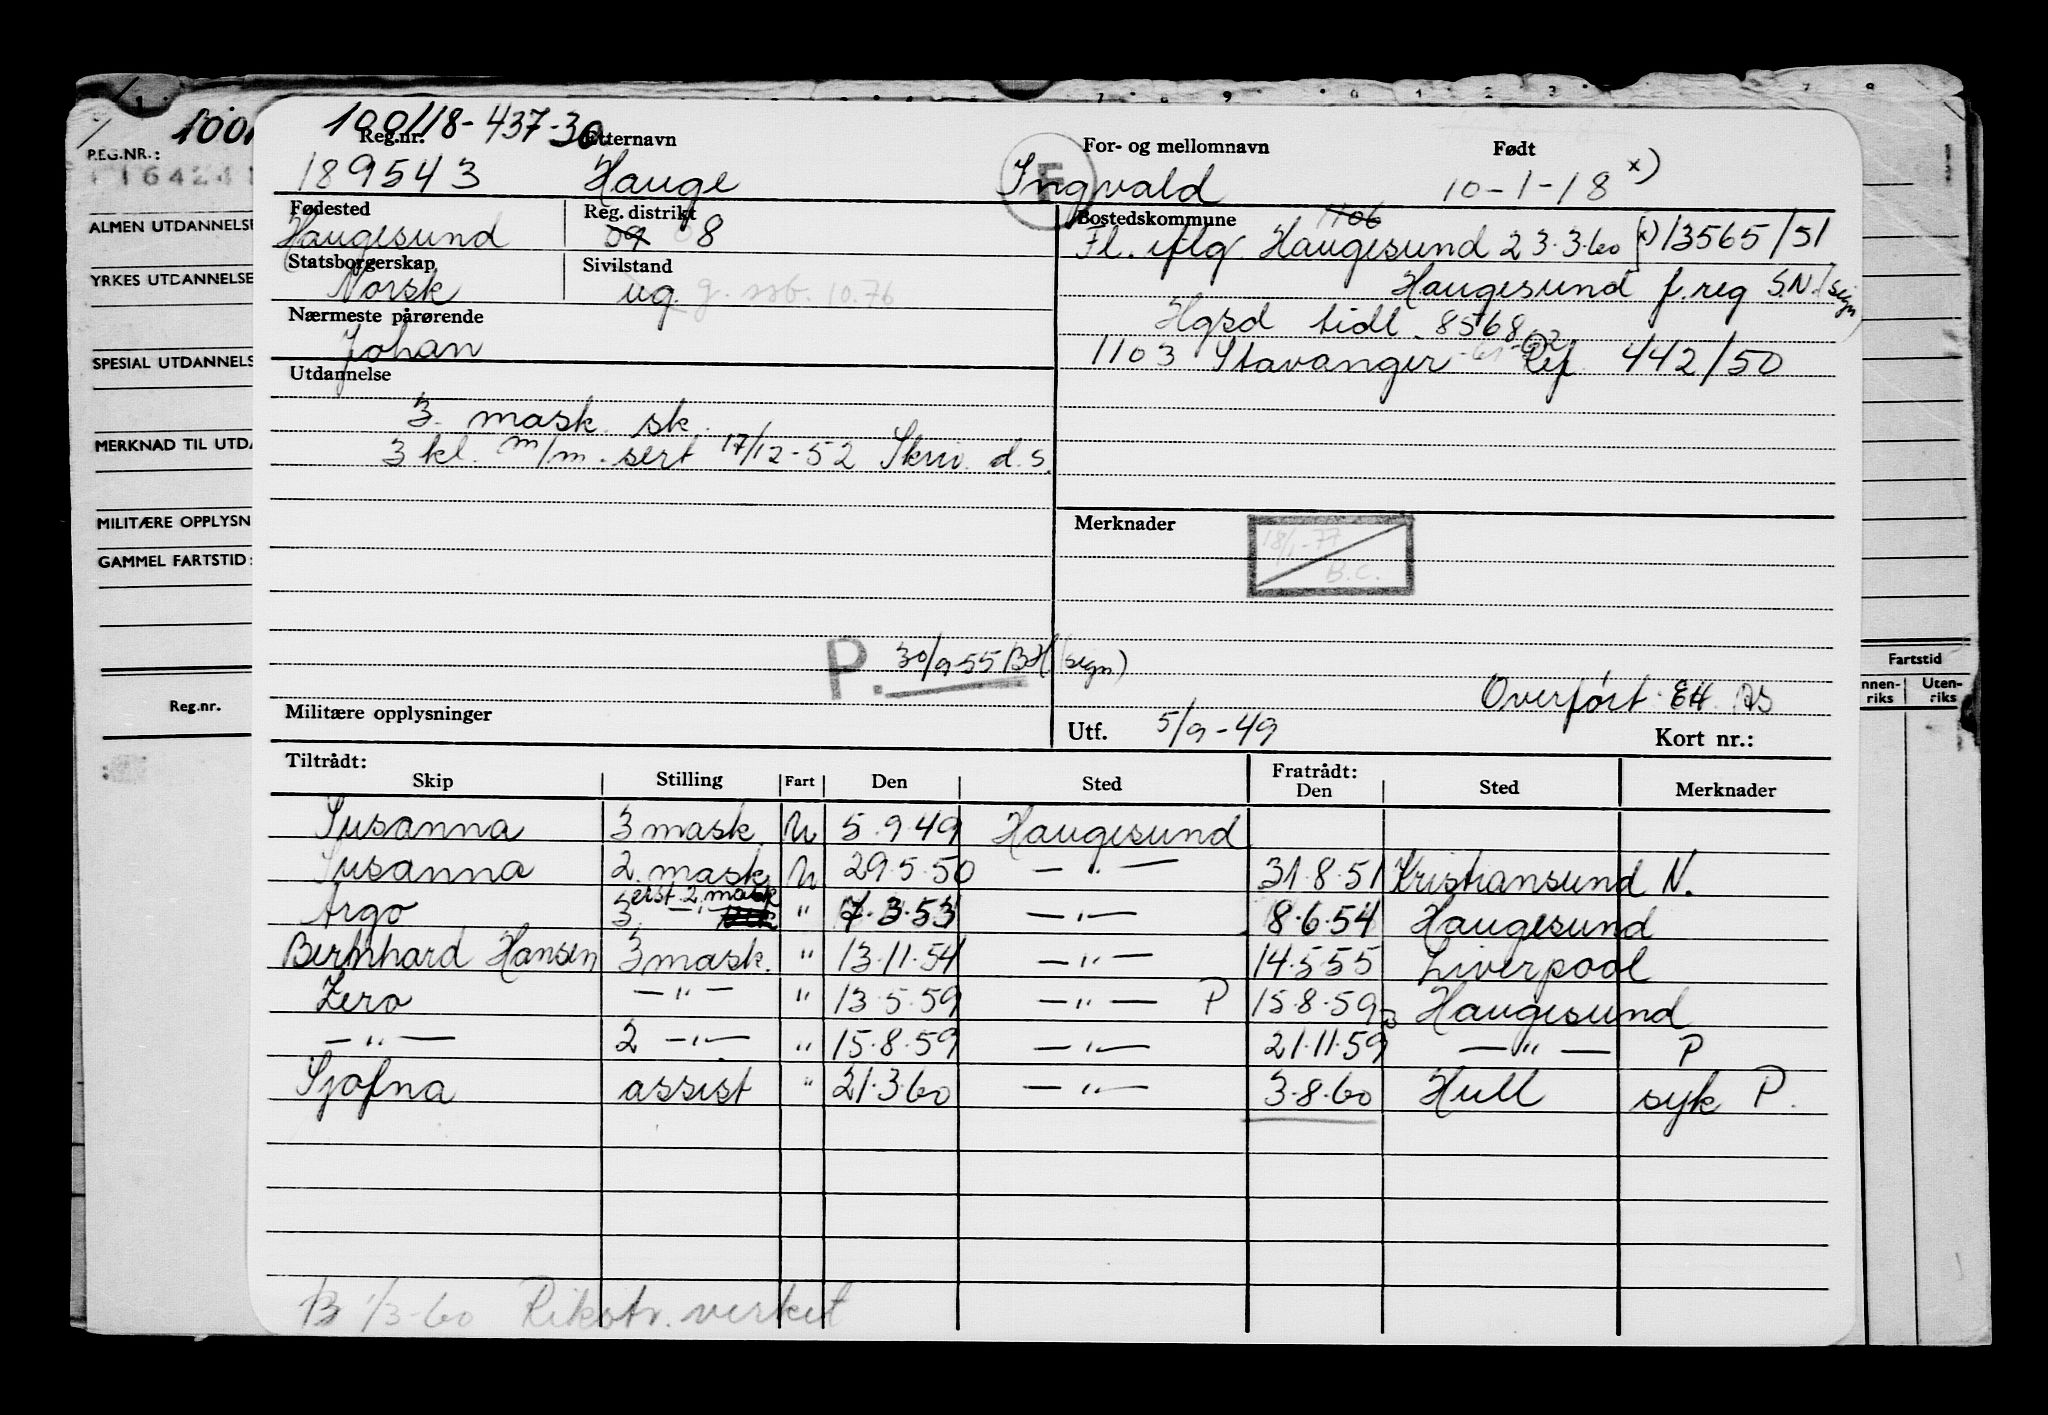 100118-437-30
Reg.nr. Etternavn For- og mellomnavn Født
189543 Hauge Ingvald 10-1-18 x)
F
Fødested Reg. distrikt Bostedskommune 1106
Haugesund 09 8 Fl. iflg Haugesund 23.3.60 x) 13565/51
Statsborgerskap Sivilstand Haugesund f. reg S.N. (sign)
Norsk ug. g. ssb. 10.76
Nærmeste pårørende Hgsd tidl. 8568
Johan 1103 Stavanger 442/50
Utdannelse
3. mask. sk.
3 kl. m/m. sert 17/12-52 Skriv. d.s.
Merknader
18/1-77
B.C.
P. 30/9-55 BH (sign.)
Overført EH
Militære opplysninger Utf. 5/9-49 Kort nr.:
Tiltrådt: Fratrådt:
Skip Stilling Fart Den Sted Den Sted Merknader
Susanna 3 mask. U 5.9.49 Haugesund
Susanna 2. mask U 29.5.50 — " — 31.8.51 Kristiansund N.
erst. 2 mask
Argo 3. — " — " 7.3.53 — " — 8.6.54 Haugesund
Bernhard Hansen 3 mask. " 13.11.54 — " — 14.5.55 Liverpool
Zero — " — " 13.5.59 — " — P 15.8.59 Haugesund
— " — 2 — " — " 15.8.59 — " — 21.11.59 — " — P
Sjofna assist " 21.3.60 — " — 3.8.60 Hull syk P.
B 1/3-60 Rikstr. verket
1001
REG.NR.:
116424
ALMEN UTDANNELSE
YRKES UTDANNELSE
SPESIAL UTDANNELS
MERKNAD TIL UTDA
MILITÆRE OPPLYSN
GAMMEL FARTSTID:
Reg.nr.
Fartstid
nnen-riks Uten-riks